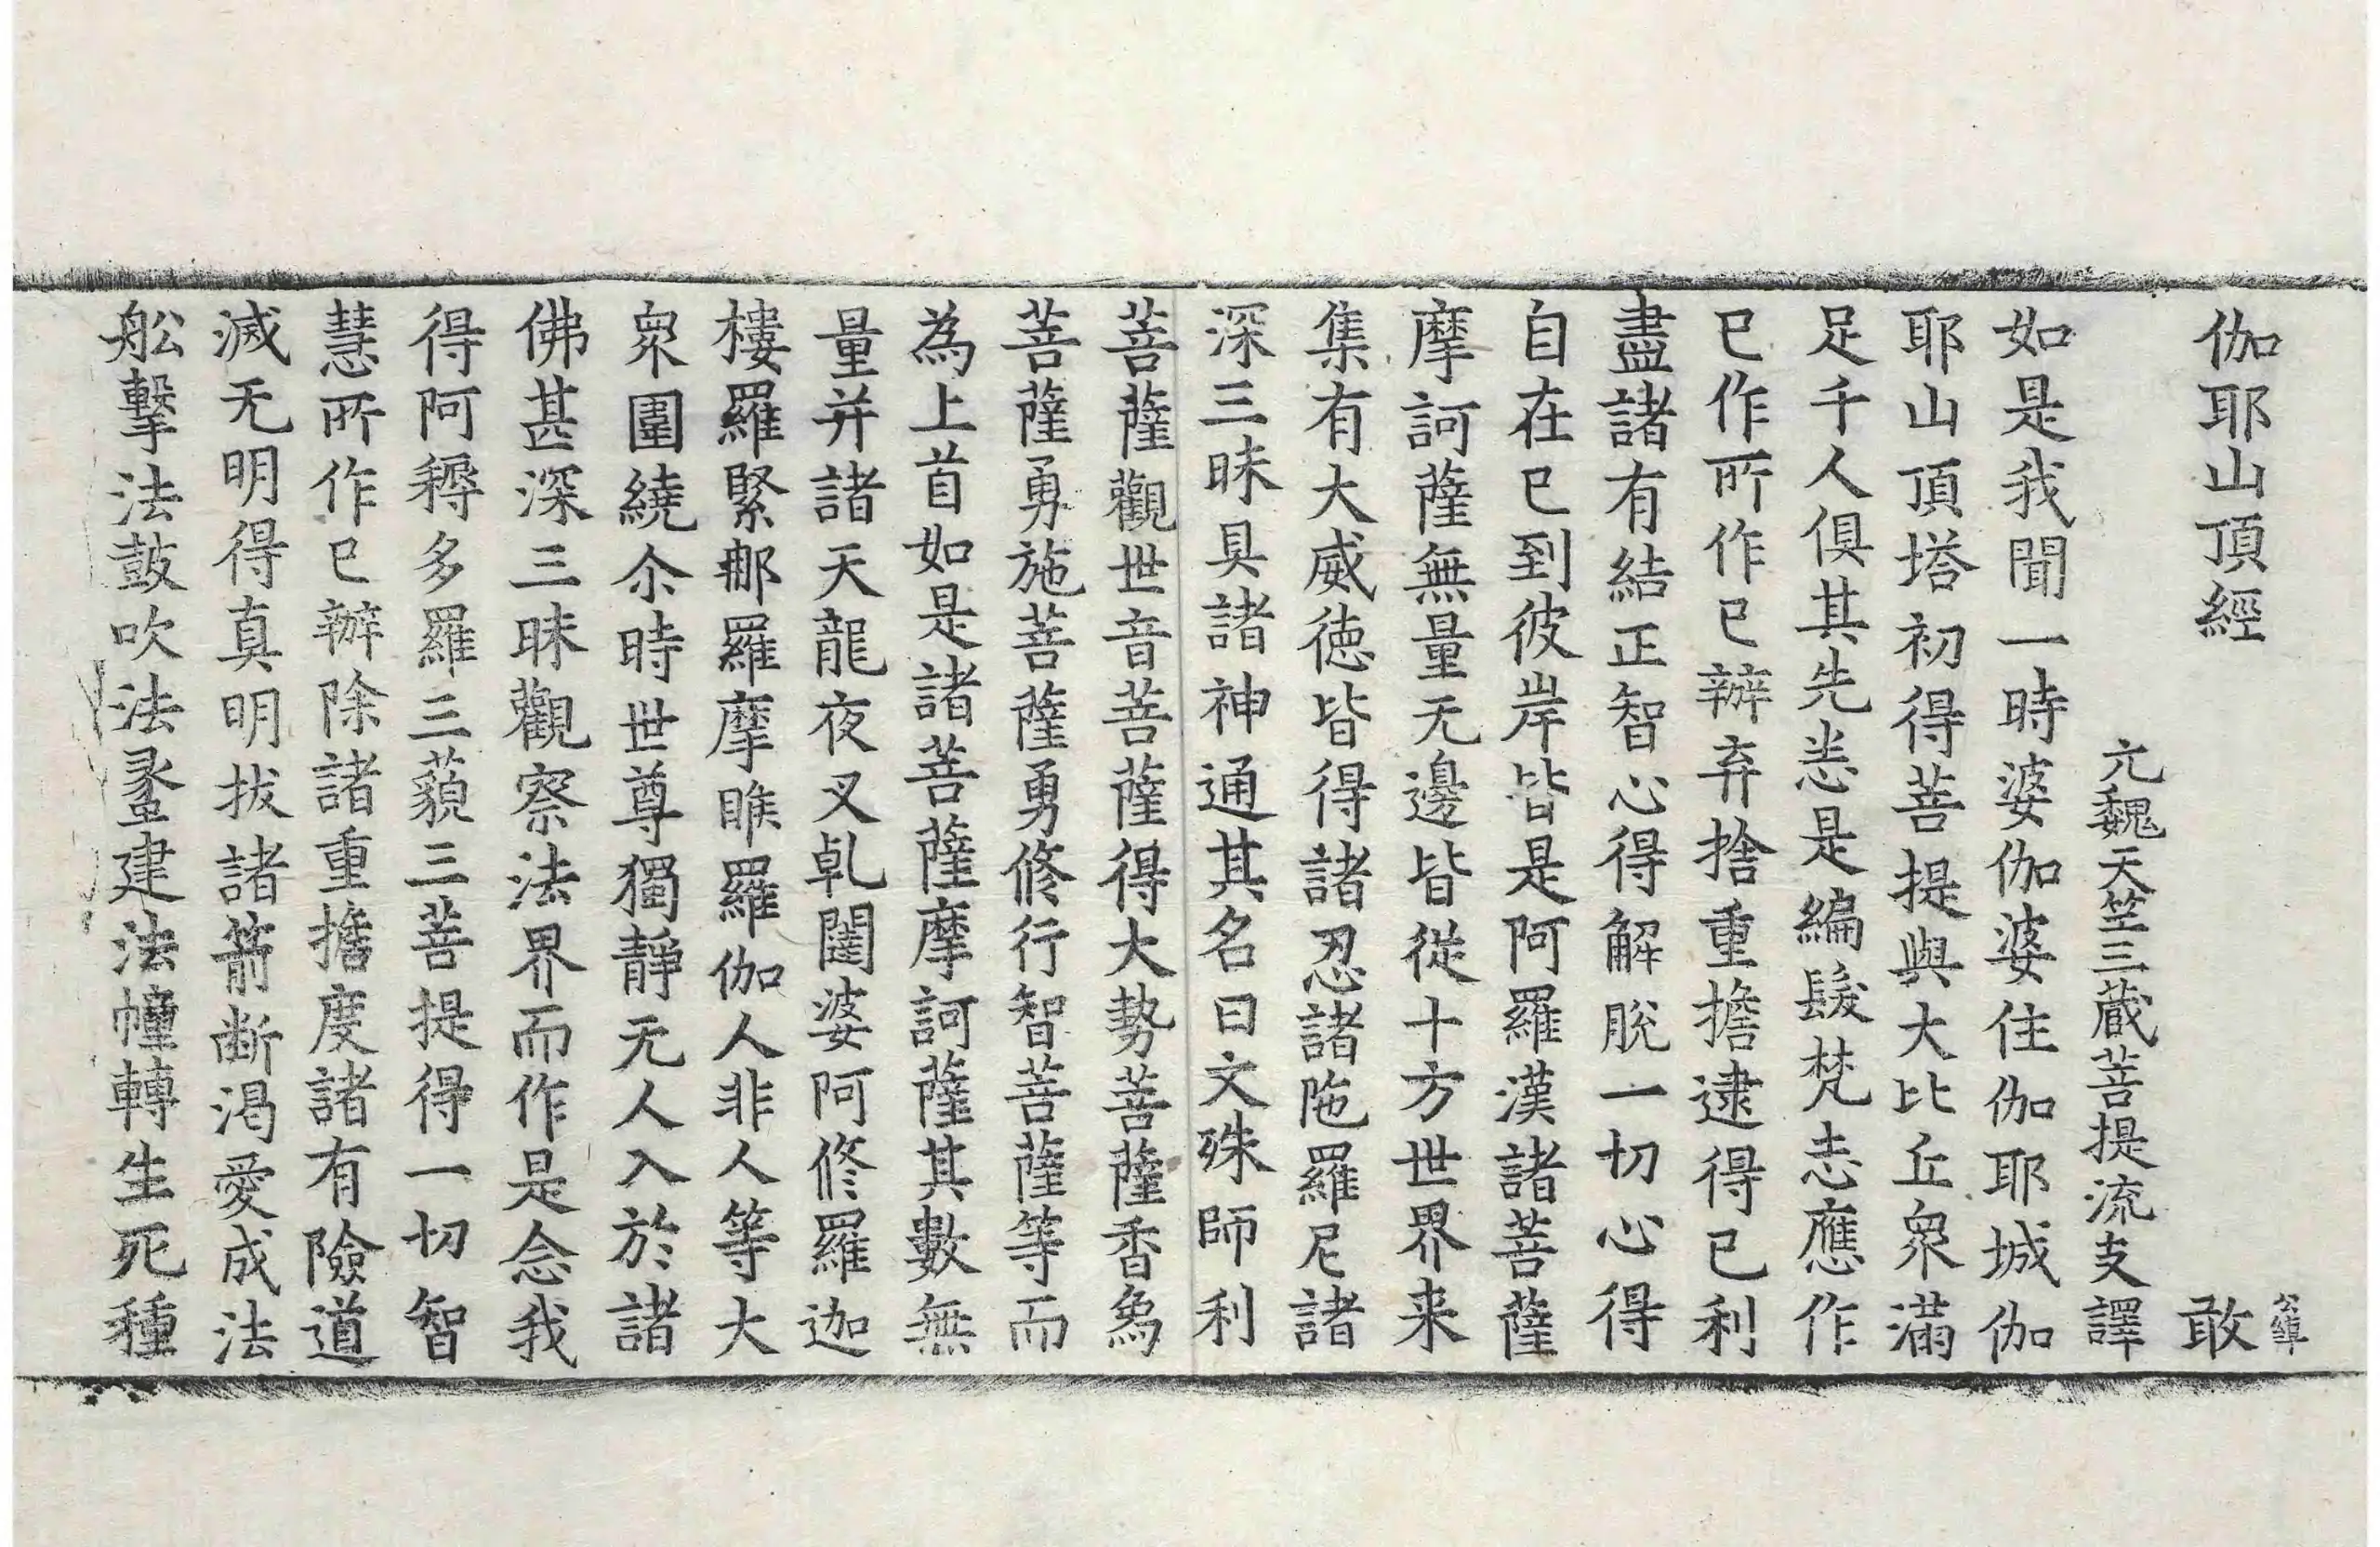 伽耶山頂經 敢
元魏天竺三藏菩提流支譯
如是我聞一時婆伽婆住伽耶城伽
耶山頂塔初得菩提與大比丘衆滿
足千人俱其先悉是編髮梵志應作
已作所作已辦弃捨重擔逮得已利
盡諸有結正智心得解脫一切心得
自在已到彼岸皆是阿羅漢諸菩薩
摩訶薩無量无邊皆從十方世界来
集有大威德皆得諸忍諸陁羅尼諸
深三昧具諸神通其名曰文殊師利
菩薩觀世音菩薩得大勢菩薩香象
菩薩勇施菩薩勇修行智菩薩等而
為上首如是諸菩薩摩訶薩其數無
量并諸天龍夜叉乹闥婆阿修羅迦
樓羅緊那羅摩睺羅伽人非人等大
衆圍繞尒時世尊獨靜无人入於諸
佛甚深三昧觀察法界而作是念我
得阿耨多羅三藐三菩提得一切智
慧所作已辦除諸重擔度諸有險道
滅无明得真明拔諸箭断渴愛成法
舩擊法鼓吹法蠡建法幢轉生死種